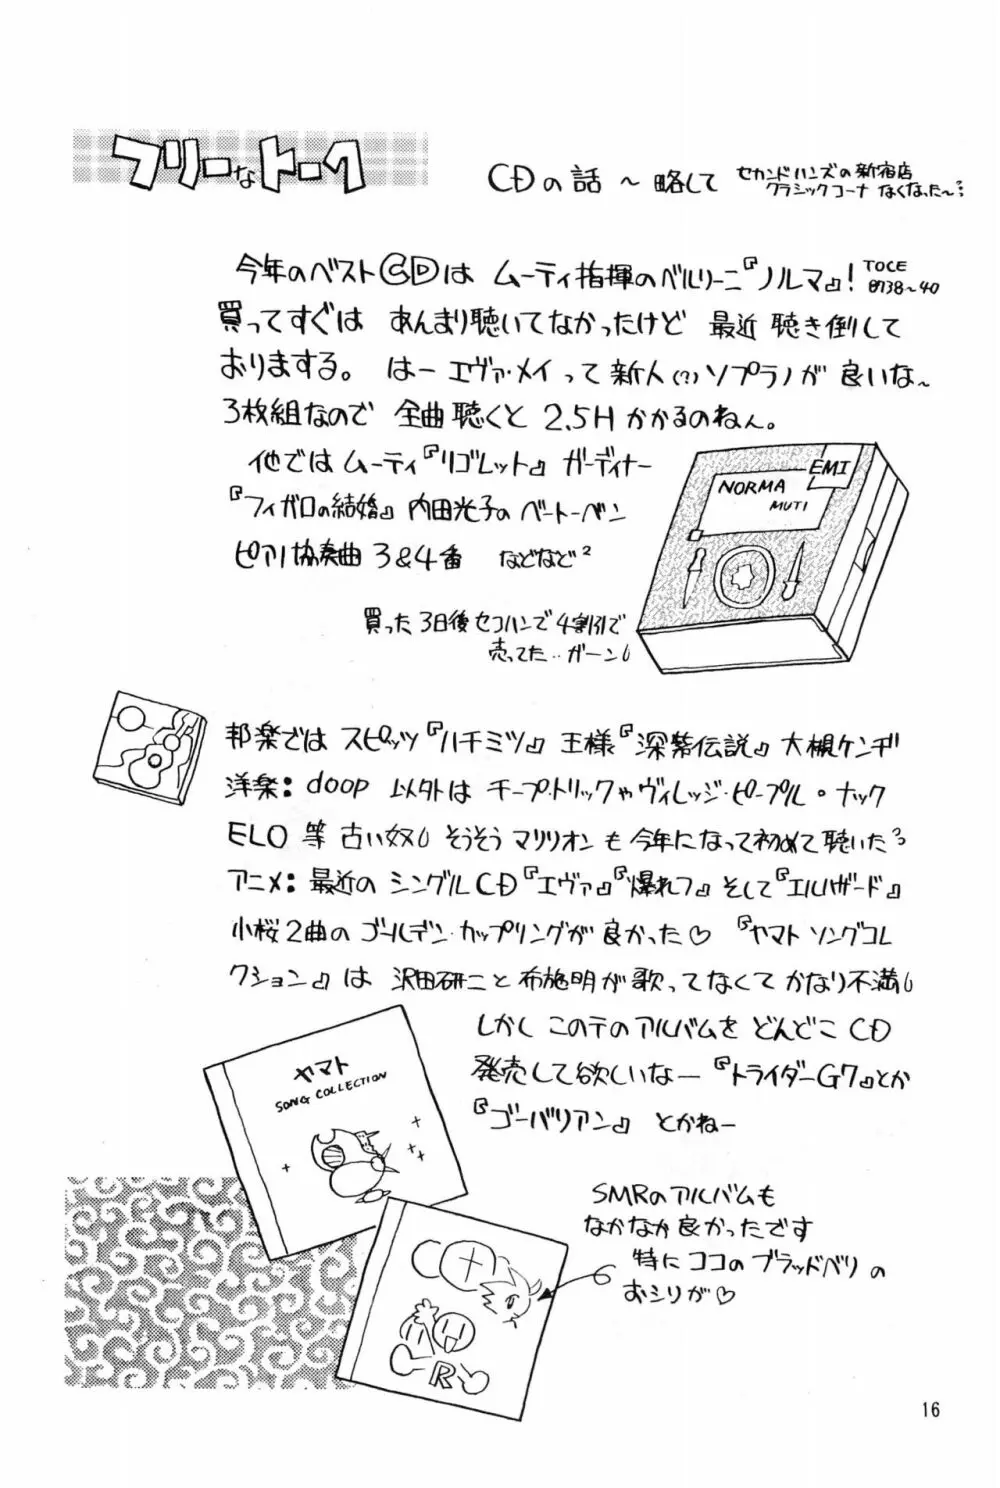 フリーなトーク
CDの話 ～ 略して
セカンドハンズの新宿店
クラシックコーナ なくなった～
今年のベストCDは ムーティ指揮のベルリーニ『ノルマ』!
TOCE
8738～40
買ってすぐは あんまり聴いてなかったけど 最近 聴き倒して
おりまする。 はー エヴァ・メイって 新人(?)ソプラノが 良いな～
3枚組なので 全曲聴くと 2.5H かかるのねん。
他では ムーティ『リゴレット』 ガーディナー
『フィガロの結婚』 内田光子の ベートーベン
ピアノ協奏曲 3&4番 などなど²
EMI
NORMA
MUTI
買った3日後セコハンで4割引で
売ってた‥ガーン
邦楽では スピッツ『ハチミツ』 王様『深紫伝説』 大槻ケンヂ
洋楽: doop 以外は チープ・トリックやヴィレッジ・ピープル・ナック
ELO 等 古い奴 そうそう マリリオンも 今年になって初めて聴いた
アニメ: 最近の シングルCD『エヴァ』『爆れフ』そして『エルハザード』
小桜2曲の ゴールデン・カップリングが 良かった♡ 『ヤマト ソングコレ
クション』は 沢田研二と布施明が歌ってなくて かなり不満
しかし このテのアルバムを どんどこ CD
発売して欲しいなー『トライダーG7』とか
『ゴーバリアン』 とかねー
ヤマト
SONG COLLECTION
SMRのアルバムも
なかなか良かったです
特に ココの ブラッドベリの
おシリが♡
R
16